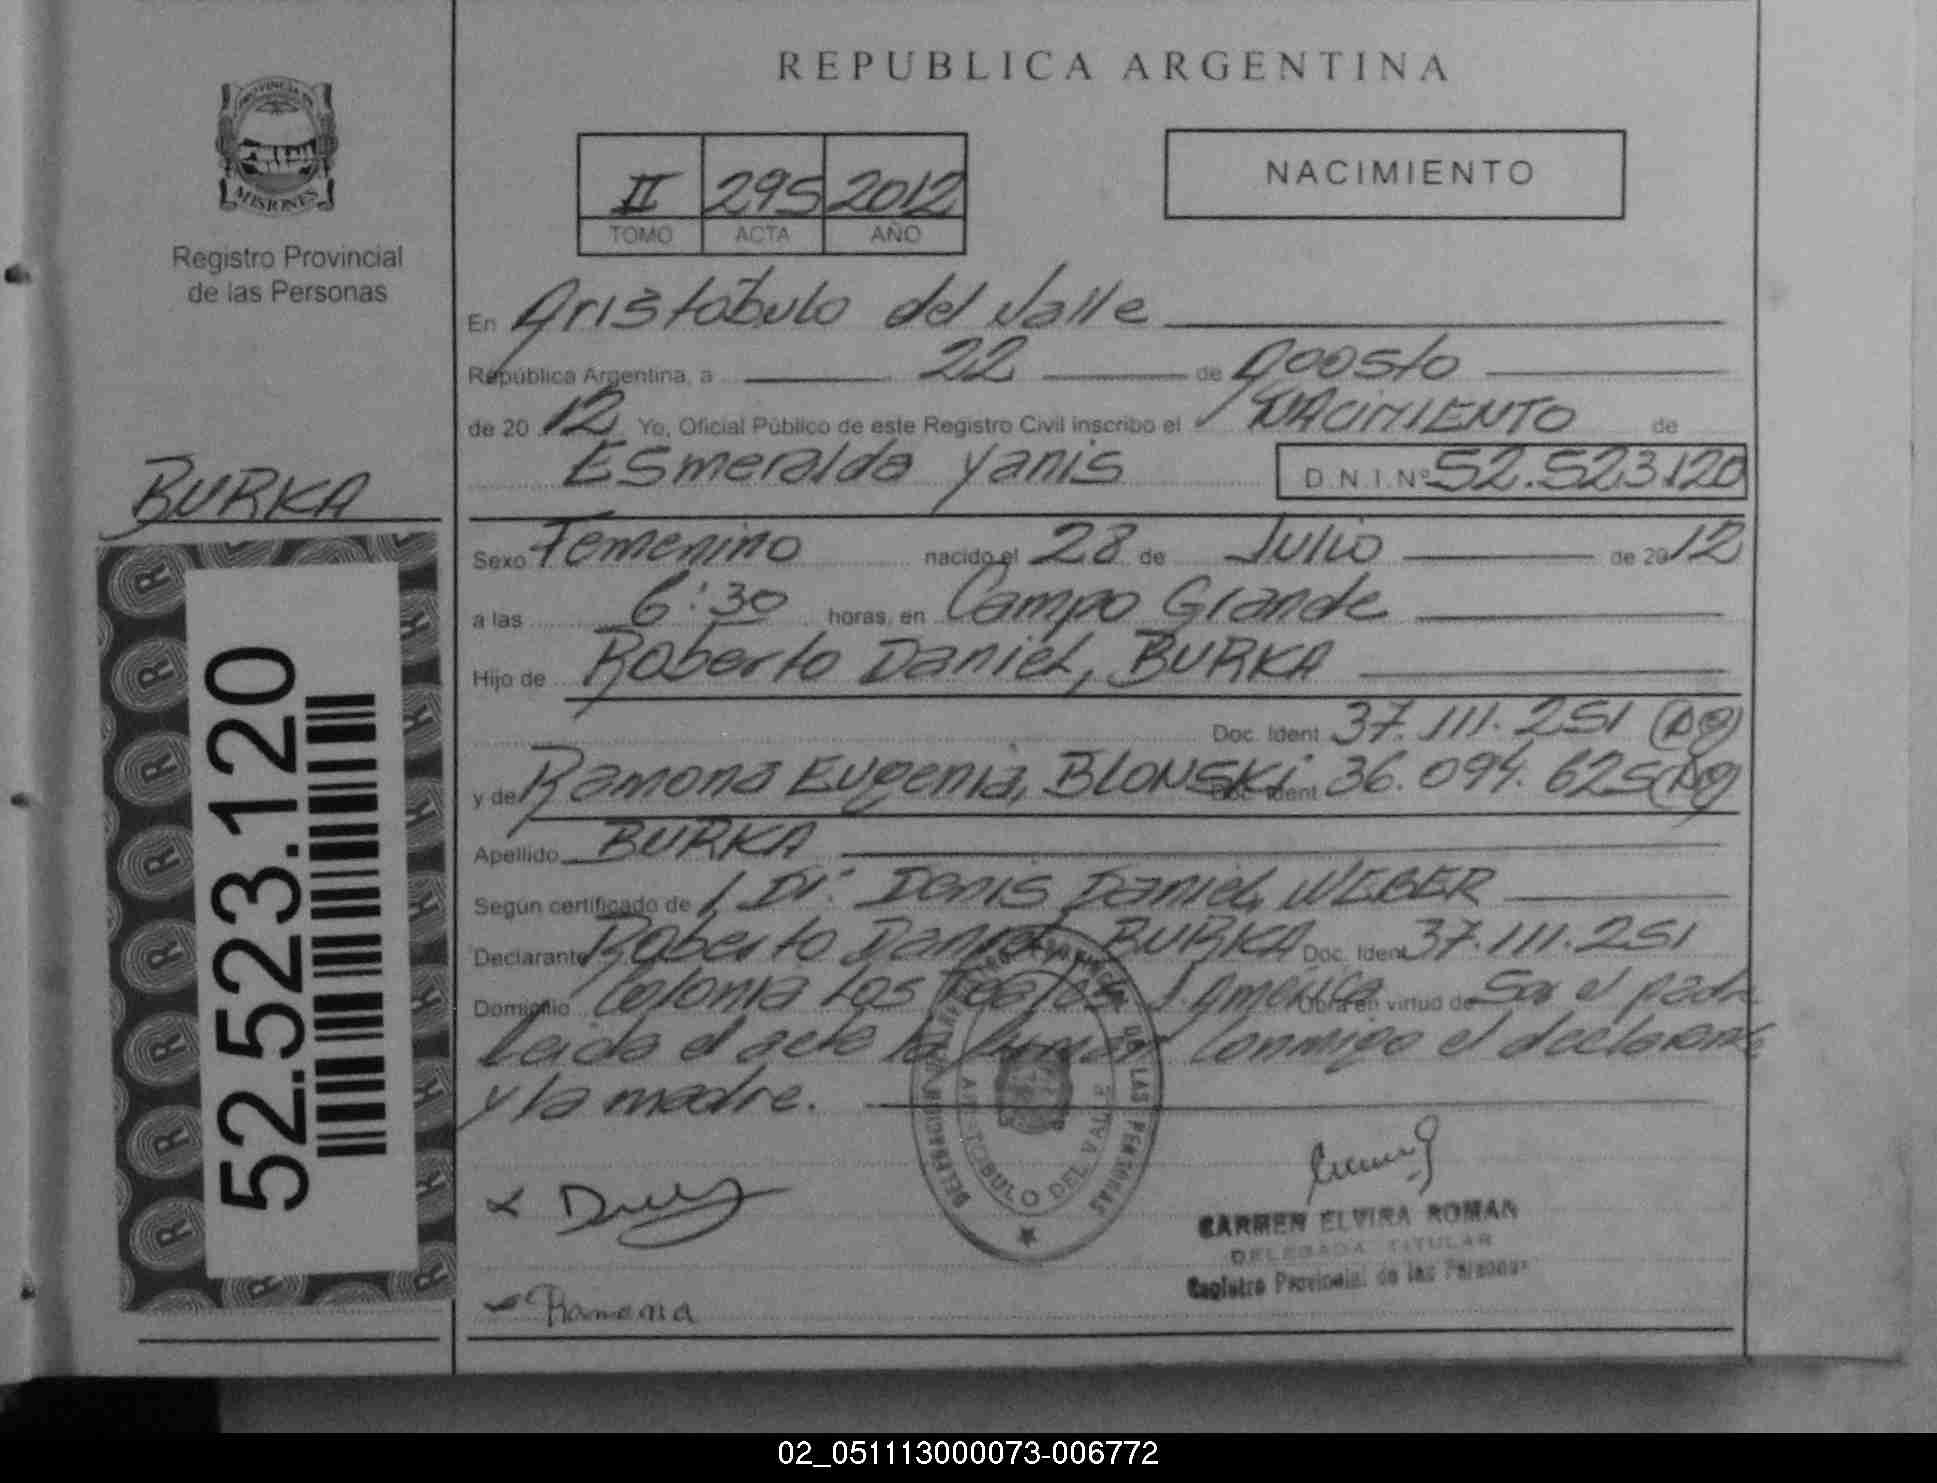 REPUBLICA ARGENTINA
PROVINCIA DE MISIONES
Registro Provincial
de las Personas
II 295 2012
TOMO ACTA AÑO
NACIMIENTO
En Aristóbulo del Valle
República Argentina, a 22 de Agosto
de 2012 Yo, Oficial Público de este Registro Civil inscribo el NACIMIENTO de
Esmeralda Yanis D.N.I.Nº 52.523.120
BURKA
Sexo Femenino nacido el 28 de Julio de 2012
a las 6:30 horas, en Campo Grande
Hijo de Roberto Daniel, BURKA
Doc. Ident 37.111.251
y de Ramona Eugenia, BLONSKi Doc. Ident 36.094.625
Apellido BURKA
Según certificado de Dr. Denis Daniel, WEBER
Declarante Roberto Daniel, BURKA Doc. Ident 37.111.251
Domicilio Colonia Las J. América Obra en virtud de Ser el padre
Leida el acta la firman conmigo el declarante
y la madre.
52.523.120
DELEGACION REGISTRO PROVINCIAL DE LAS PERSONAS
ARISTOBULO DEL VALLE
CARMEN ELVIRA ROMAN
DELEGADA TITULAR
Registro Provincial de las Personas
Ramona
02_051113000073-006772